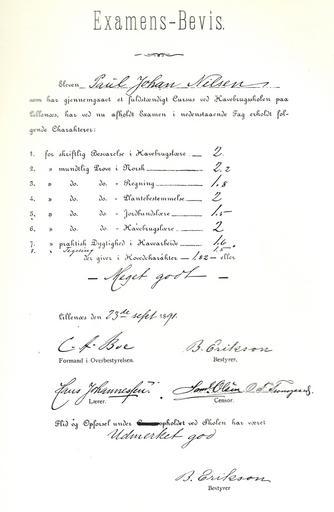 Examens-Bevis.
Eleven Paul Johan Nilsen
som har gjennemgaaet et fuldstændigt Cursus ved Havebrugsskolen paa
Lillenæs, har ved nu afholdt Examen i nedenstaaende Fag erholdt føl-
gende Charakterer:
1. for skriftlig Besvarelse i Havebrugslære 2
2. " mundtlig Prøve i Norsk 2,2
3. " do. do. - Regning 1,8
4. " do. do. - Plantebestemmelse 2
5. " do. do. - Jordbundslære 1,5
6. " do. do. - Havebrugslære 2
7. " praktisk Dygtighed i Havearbeide 1,6
8. " Tegning 1,5
der giver i Hovedcharakter 1,82 eller
- Meget godt -
Lillenæs den 23de sept 1891.
B. Erikson
Formand i Overbestyrelsen. Bestyrer.
Lars Johannessen
Lærer. Censor.
Flid og Opførsel under opholdet ved Skolen har været
Udmerket god
B. Erikson
Bestyrer